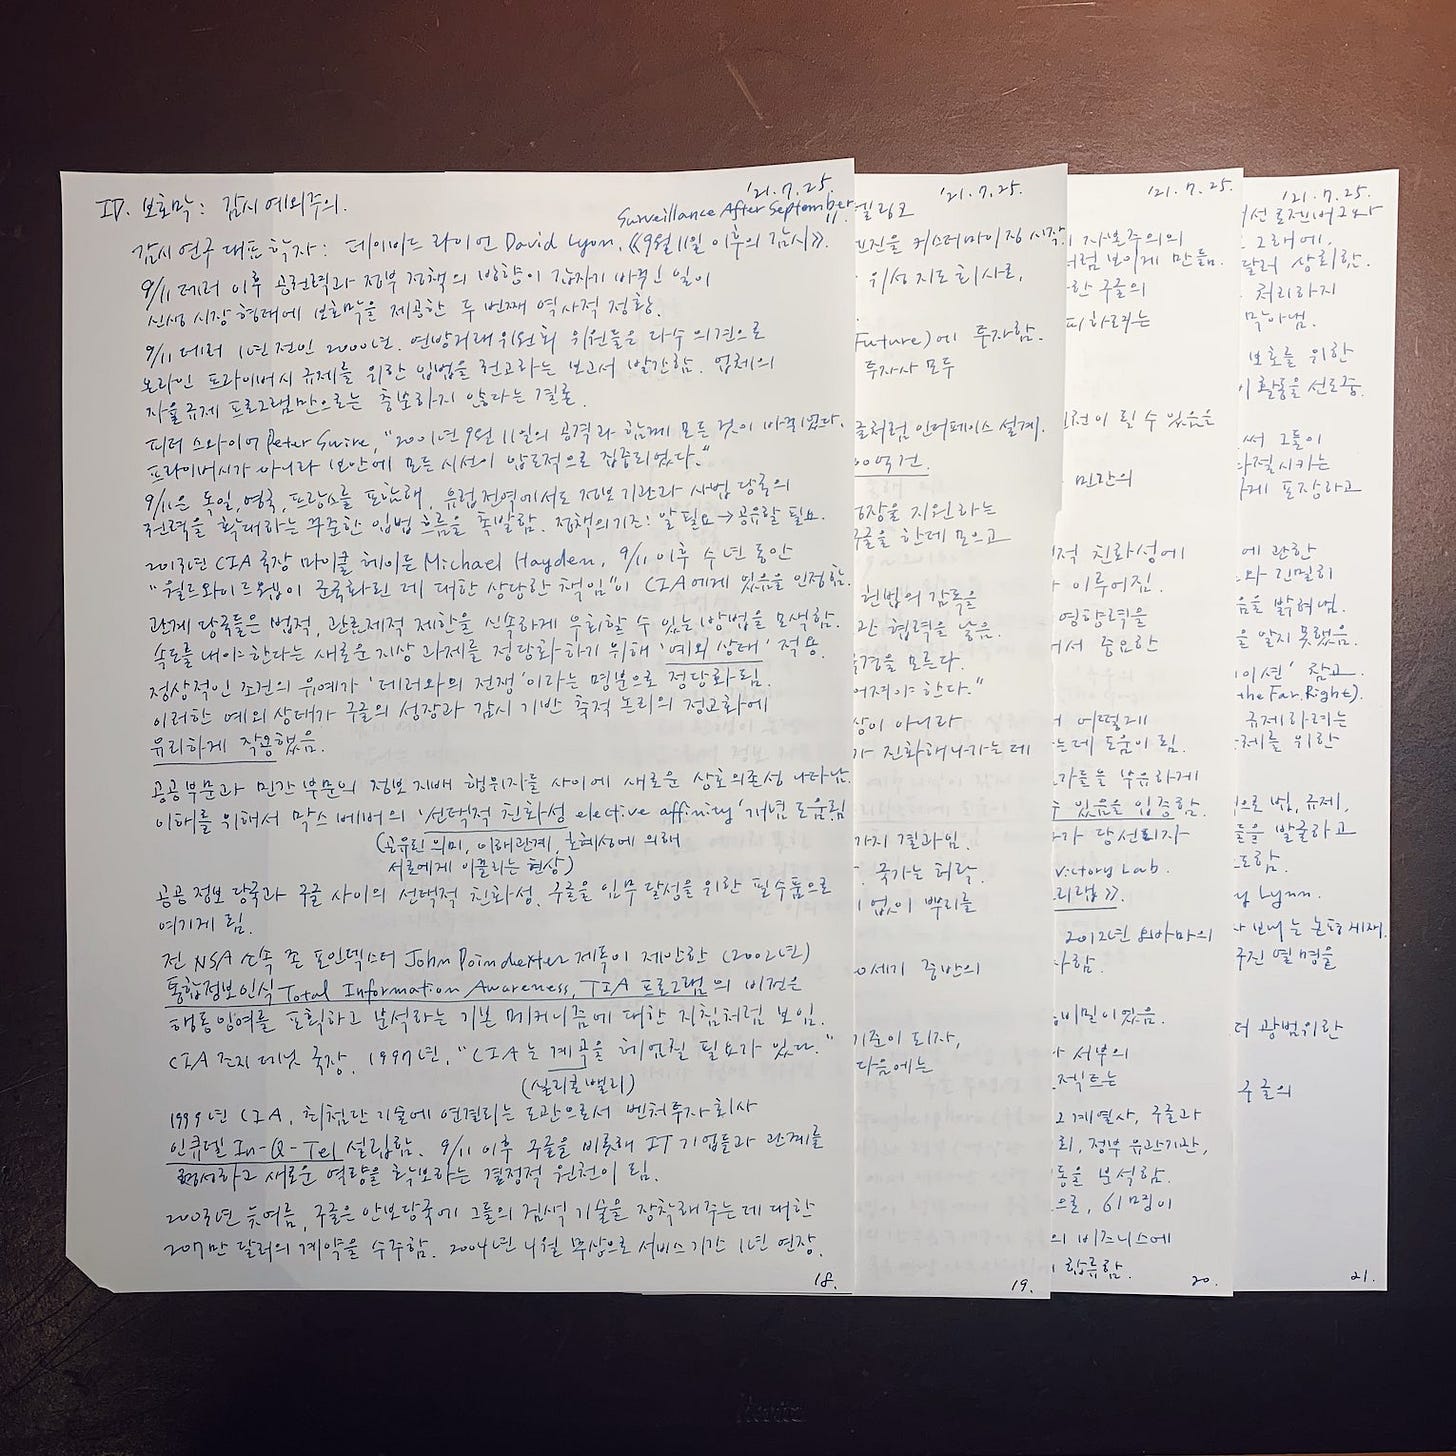 IV. 보호막: 감시 예외주의.
'21.7.25.
Surveillance After September 11.
감시 연구 대표 학자: 데이비드 라이언 David Lyon, 《9월 11일 이후의 감시》.
9/11 테러 이후 공권력과 정부 정책의 방향이 갑자기 바뀐 일이
신생 시장 형태에 보호막을 제공한 두 번째 역사적 정황.
9/11 테러 1년 전인 2000년. 연방거래위원회 위원들은 다수 의견으로
온라인 프라이버시 규제를 위한 입법을 권고하는 보고서 발간함. 업체의
자율규제 프로그램만으로는 충분하지 않다는 결론.
피터 스와이어 Peter Swire, "2001년 9월 11일의 공격과 함께 모든 것이 바뀌었다.
프라이버시가 아니라 보안에 모든 시선이 압도적으로 집중되었다."
9/11은 독일, 영국, 프랑스를 포함해, 유럽 전역에서도 정보기관과 사법 당국의
권력을 확대하는 꾸준한 입법 흐름을 촉발함. 정책의 기조: 알 필요→공유할 필요.
2013년 CIA 국장 마이클 헤이든 Michael Hayden, 9/11 이후 수 년 동안
"월드와이드웹이 군국화된 데 대한 상당한 책임"이 CIA에게 있음을 인정함.
관계 당국들은 법적, 관료제적 제한을 신속하게 우회할 수 있는 방법을 모색함.
속도를 내야 한다는 새로운 지상 과제를 정당화하기 위해 '예외 상태' 적용.
정상적인 조건의 유예가 '테러와의 전쟁'이라는 명분으로 정당화됨.
이러한 예외 상태가 구글의 성장과 감시 기반 축적 논리의 정교화에
유리하게 작용했음.
공공부문과 민간 부문의 정보 지배 행위자들 사이에 새로운 상호의존성 나타남.
이해를 위해서 막스 베버의 '선택적 친화성 elective affinity' 개념 도움됨
(공유된 의미, 이해관계, 호혜성에 의해
서로에게 이끌리는 현상)
공공 정보 당국과 구글 사이의 선택적 친화성. 구글을 임무 달성을 위한 필수품으로
여기게 됨.
전 NSA 소속 존 포인덱스터 John Poindexter 제독이 제안한 (2002년)
통합정보인식 Total Information Awareness, TIA 프로그램의 비전은
행동잉여를 포획하고 분석하는 기본 메커니즘에 대한 지침처럼 보임.
CIA 조지 테닛 국장. 1997년, "CIA는 계곡을 헤엄칠 필요가 있다."
(실리콘밸리)
1999년 CIA, 최첨단 기술에 연결되는 도관으로서 벤처투자회사
인큐텔 In-Q-Tel 설립함. 9/11 이후 구글을 비롯해 IT 기업들과 관계를
형성하고 새로운 역량을 확보하는 결정적 원천이 됨.
2003년 늦여름, 구글은 안보당국에 그들의 검색 기술을 장착해주는 데 대한
207만 달러의 계약을 수주함. 2004년 4월 무상으로 서비스 기간 1년 연장.
18.
'21.7.25.
커스터마이징 시작.
위성 지도 회사로,
Future)에 투자함.
투자사 모두
글처럼 인터페이스 설계.
00억 건.
지원하는
구글을 한데 모으고
헌법의 감독을
협력을 낳음.
모른다.
어져야 한다."
상이 아니라
가 진화해나가는 데
가지 결과임.
국가는 허락.
없이 뿌리를
0세기 중반의
기준이 되자,
다음에는
19.
'21.7.25.
자본주의의
처럼 보이게 만듦.
한 구글의
피하려는
원천이 될 수 있음을
민간의
적 친화성에
이루어짐.
영향력을
서 중요한
어떻게
는데 도움이 됨.
가들을 부유하게
수 있음을 입증함.
가 당선되자
Victory Lab.
리랩》.
2012년 오바마의
사함.
비밀이 있음.
서부의
젝트는
그 계열사, 구글과
회, 정부 유관기관,
동을 분석함.
으로, 61명이
의 비즈니스에
합류함.
20.
'21.7.25.
그래에,
달러 상회함.
처리하지
막아냄.
보호를 위한
이 활동을 선도중.
써 그들이
좌절시키는
하게 포장하고
에 관한
와 긴밀히
음을 밝혀냄.
을 알지 못했음.
이션' 참고.
the Far Right).
규제하려는
규제를 위한
으로 법, 규제,
들을 발굴하고
도함.
y Lynn.
보내는 논평 게재.
꾸린 열 명을
더 광범위한
구글의
21.